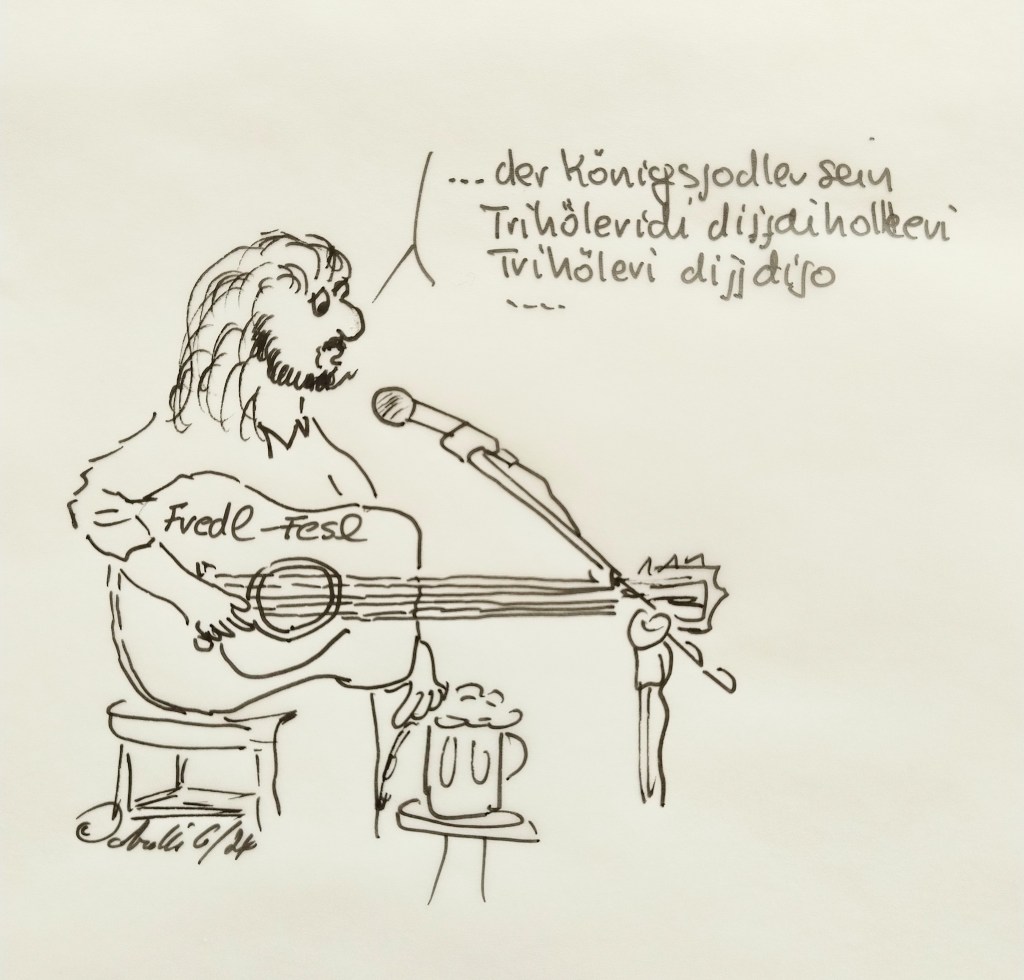 ... der Königsjodler sein
Trihöleridi dijjdiholleri
Trihöleri dijjdijo
....
Fredl Fesl
© 6/24